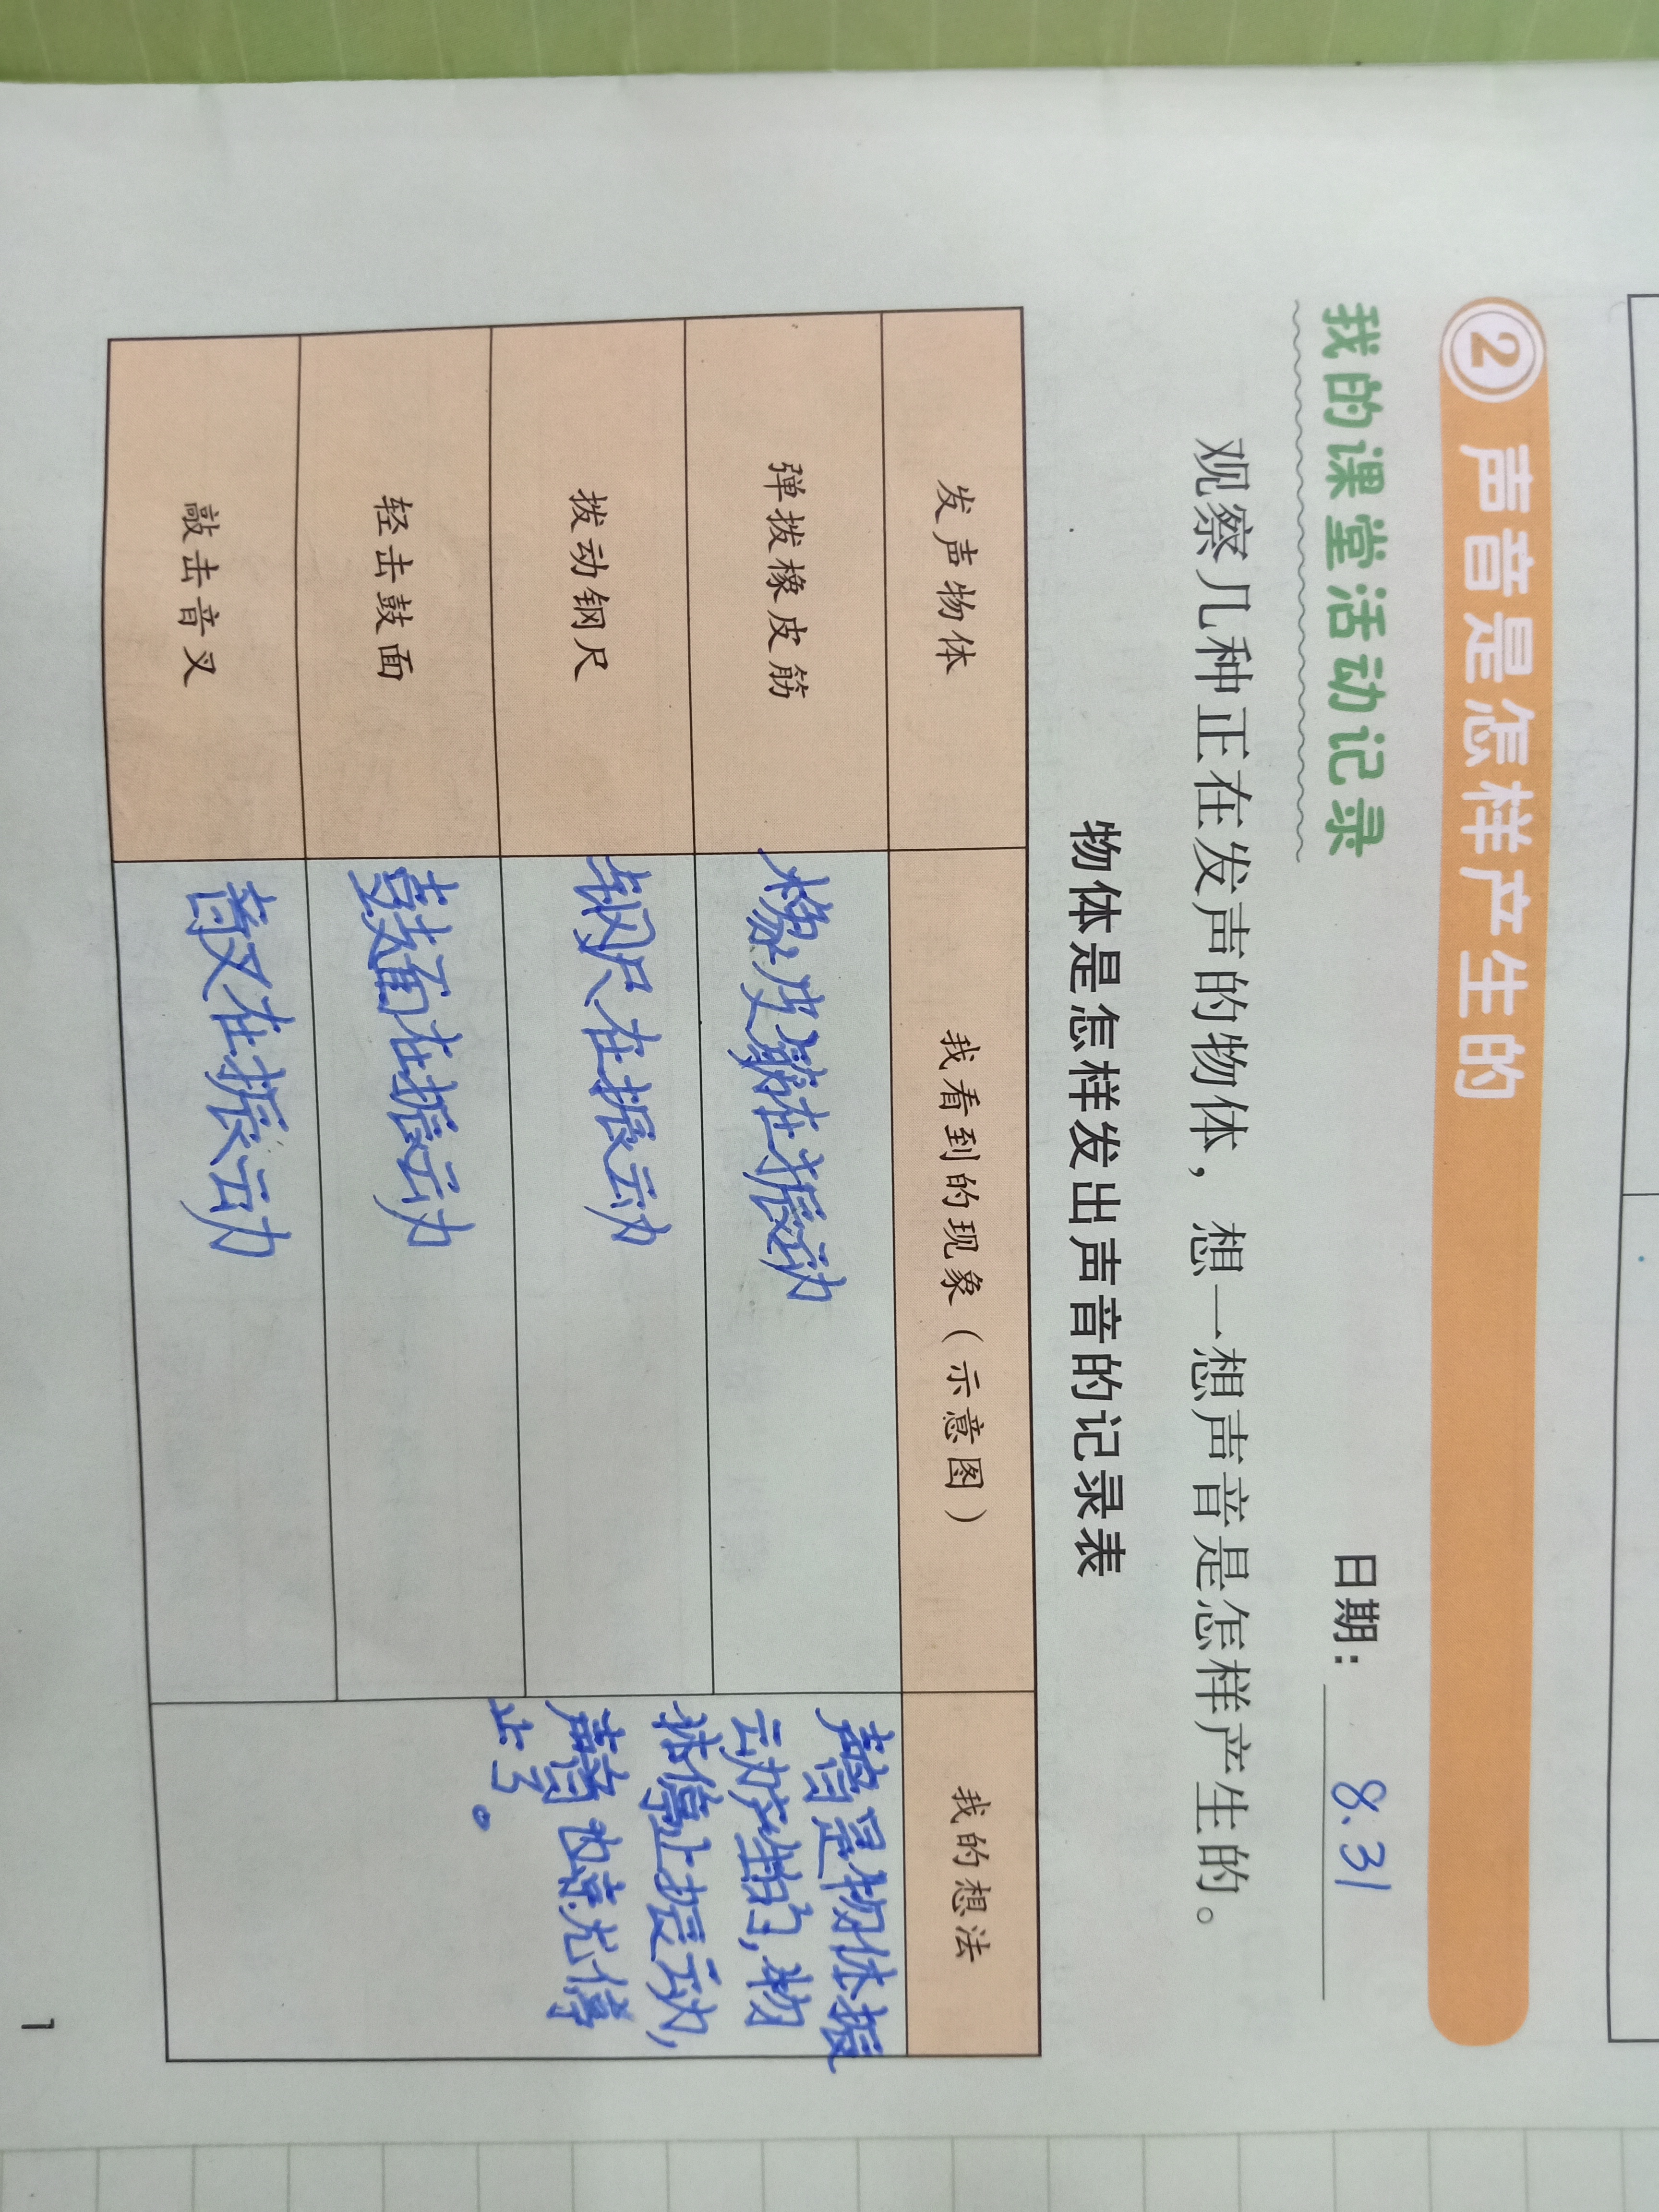 2 声音是怎样产生的
我的课堂活动记录
日期：8.31
观察几种正在发声的物体，想一想声音是怎样产生的。
物体是怎样发出声音的记录表
发声物体 我看到的现象（示意图） 我的想法
弹拨橡皮筋 橡皮筋在振动
拨动钢尺 钢尺在振动
轻击鼓面 鼓面在振动
敲击音叉 音叉在振动
声音是物体振
动产生的，物
体停止振动，
声音也就停
止了。
1